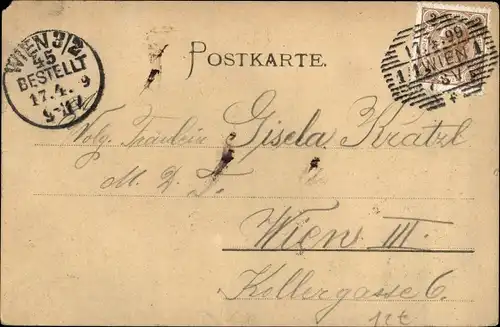 WIEN 3/2
45
BESTELLT
17.4. 9
POSTKARTE.
17.4.99
WIEN 1
Wolg. Fräulein Gisela Kratzl
M. D. T.
Wien III.
Kollergasse 6.